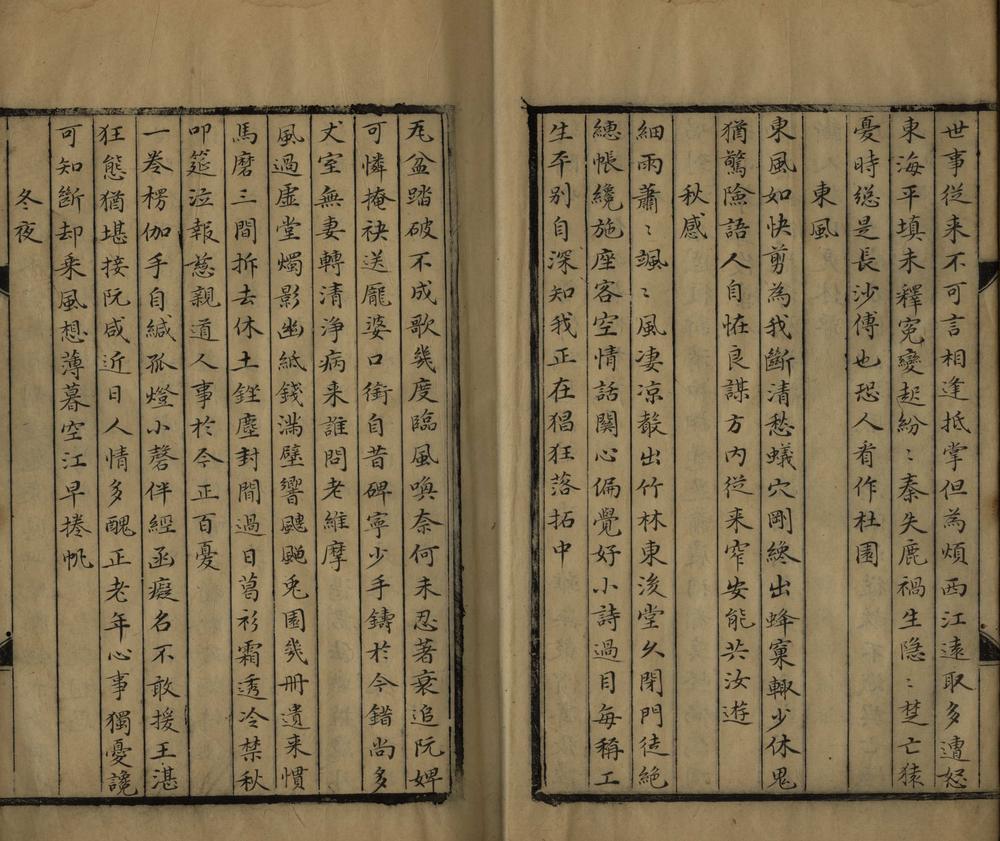 世事從来不可言相逢抵掌但為煩西江遠取多遭怒
東海平填未釋寃變起紛〻秦失鹿禍生隐〻楚亡猿
憂時緫是長沙傅也恐人看作杜園
東風
東風如快剪為我斷清愁蟻穴剛纔出蜂窠輙少休鬼
猶驚險語人自恠良謀方内従来窄安能共汝遊
秋感
細雨蕭〻颯〻風凄凉散出竹林東浚堂久閉門徒絶
繐帳纔施座客空情話関心偏覺好小詩過目每稱工
生平别自深知我正在猖狂落拓中
瓦盆踏破不成歌幾度臨風喚奈何未忍著衰追阮婢
可憐掩袂送龐婆口銜自昔碑寧少手鑄於今錯尚多
丈室無妻轉清淨病来誰問老維摩
風過虚堂燭影幽紙錢滿壁響颼飀兎園幾冊遺来慣
馬磨三間拆去休土銼塵封閒過日葛衫霜透冷禁秋
叩筵泣報慈親道人事於今正百憂
一卷楞伽手自緘孤燈小磬伴經函癡名不敢援王湛
狂態猶堪接阮咸近日人情多醜正老年心事獨憂讒
可知斷却乘風想薄暮空江早捲帆
冬夜